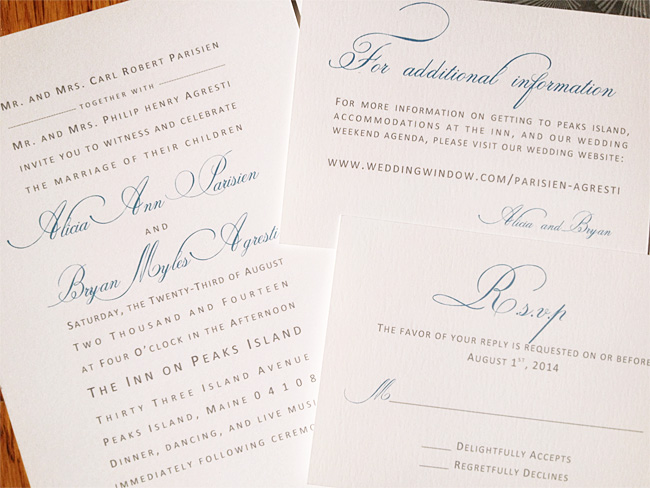 Mr. and Mrs. Carl Robert Parisien
together with
Mr. and Mrs. Philip Henry Agresti
invite you to witness and celebrate
the marriage of their children
Alicia Ann Parisien
and
Bryan Myles Agresti
Saturday, the Twenty-Third of August
Two Thousand and Fourteen
at Four O'clock in the Afternoon
The Inn on Peaks Island
Thirty Three Island Avenue
Peaks Island, Maine 04108
Dinner, dancing, and live musi
immediately following ceremo
For additional information
For more information on getting to Peaks Island,
accommodations at the inn, and our wedding
weekend agenda, please visit our wedding website:
www.weddingwindow.com/parisien-agresti
Alicia and Bryan
R.s.v.p
The favor of your reply is requested on or before
August 1st, 2014
M
Delightfully Accepts
Regretfully Declines